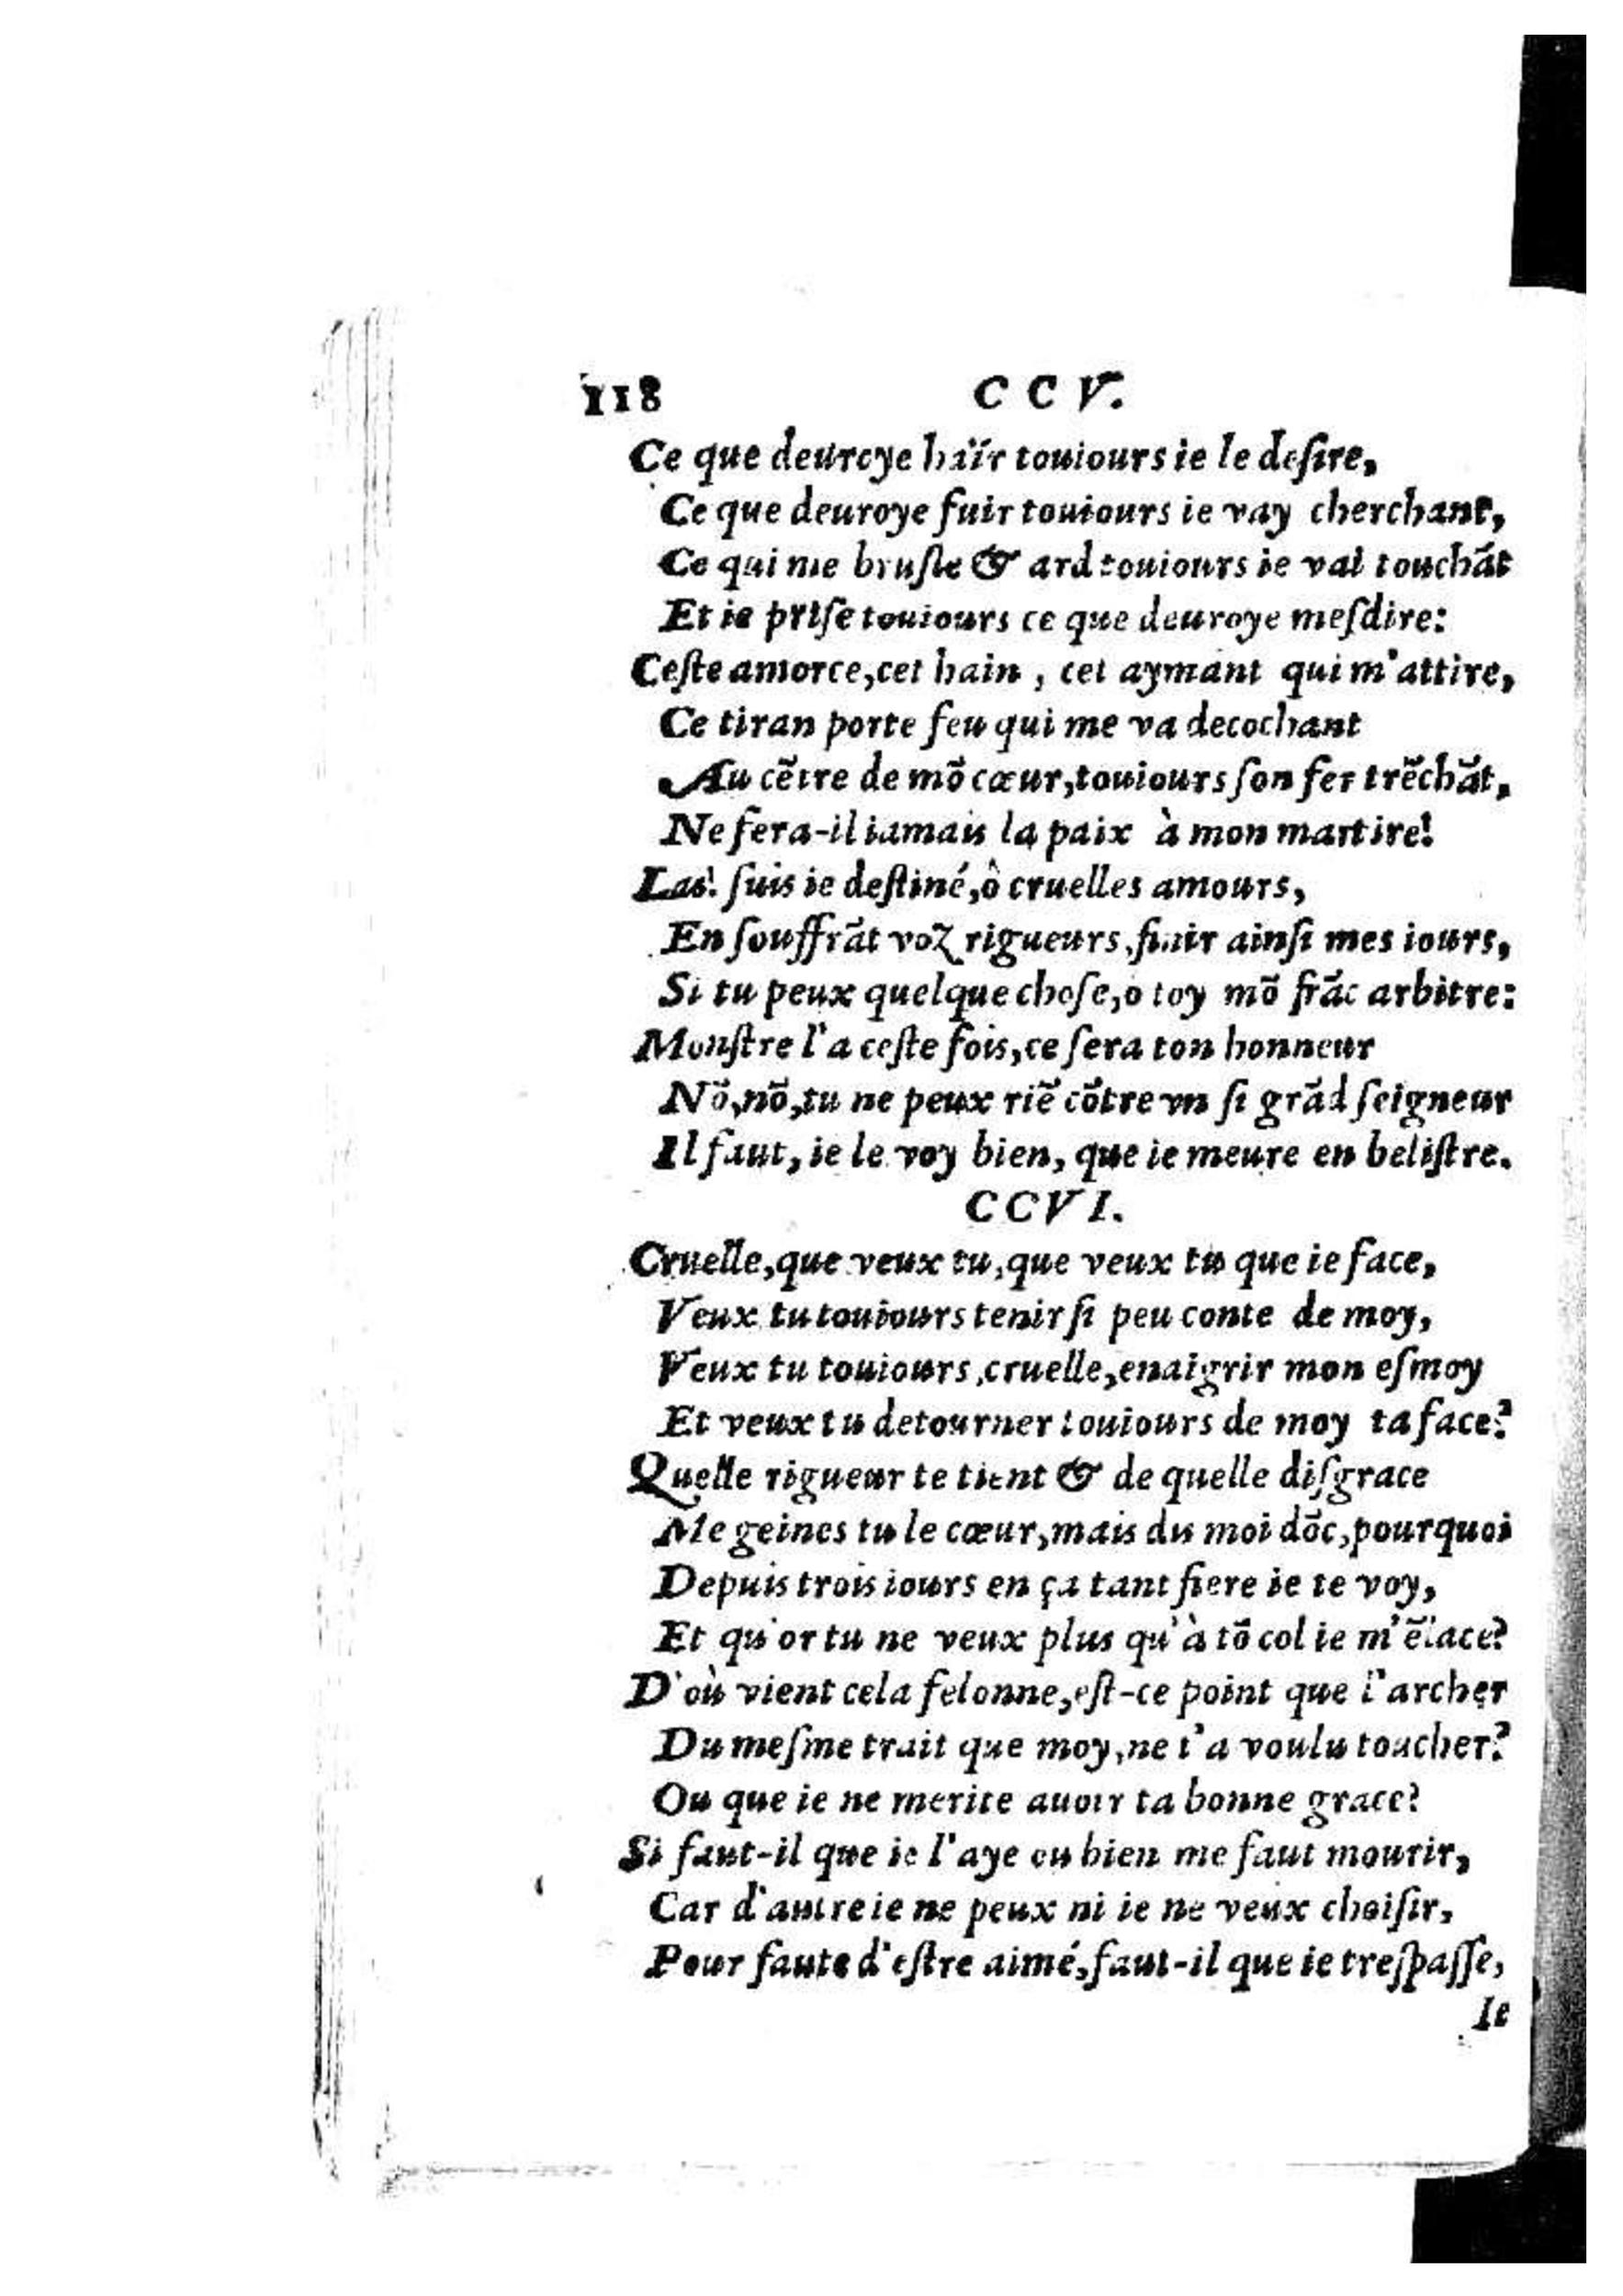 118 CCV.
Ce que deuroye haïr touiours ie le deſire,
Ce que deuroye fuir touiours ie vay cherchant,
Ce qui me bruſle & ard touiours ie vai touchãt
Et ie priſe touiours ce que deuroye meſdire:
Ceſte amorce, cet hain, cet aymant qui m'attire,
Ce tiran porte feu qui me va decochant
Au cẽtre de mõ cœur, touiours ſon fer trẽchãt,
Ne fera-il iamais la paix à mon martire!
Las! ſuis ie deſtiné, ô cruelles amours,
En ſouffrãt voz rigueurs, finir ainſi mes iours,
Si tu peux quelque choſe, o toy mõ frãc arbitre:
Monſtre l'a ceſte fois, ce ſera ton honneur
Nõ, nõ, tu ne peux riẽ cõtre vn ſi grãd ſeigneur
Il faut, ie le voy bien, que ie meure en beliſtre.
CCVI.
Cruelle, que veux tu, que veux tu que ie face,
Veux tu touiours tenir ſi peu conte de moy,
Veux tu touiours, cruelle, enaigrir mon eſmoy
Et veux tu detourner touiours de moy ta face?
Quelle rigueur te tient & de quelle diſgrace
Me geines tu le cœur, mais du moi dõc, pourquoi
Depuis trois iours en ça tant fiere ie te voy,
Et qu'or tu ne veux plus qu'à tõ col ie m'ẽlace?
D'où vient cela felonne, eſt-ce point que l'archer
Du meſme trait que moy, ne t'a voulu toucher?
Ou que ie ne merite auoir ta bonne grace?
Si faut-il que ie l'aye ou bien me faut mourir,
Car d'autre ie ne peux ni ie ne veux choiſir,
Pour faute d'eſtre aimé, faut-il que ie treſpaſſe,
Ie